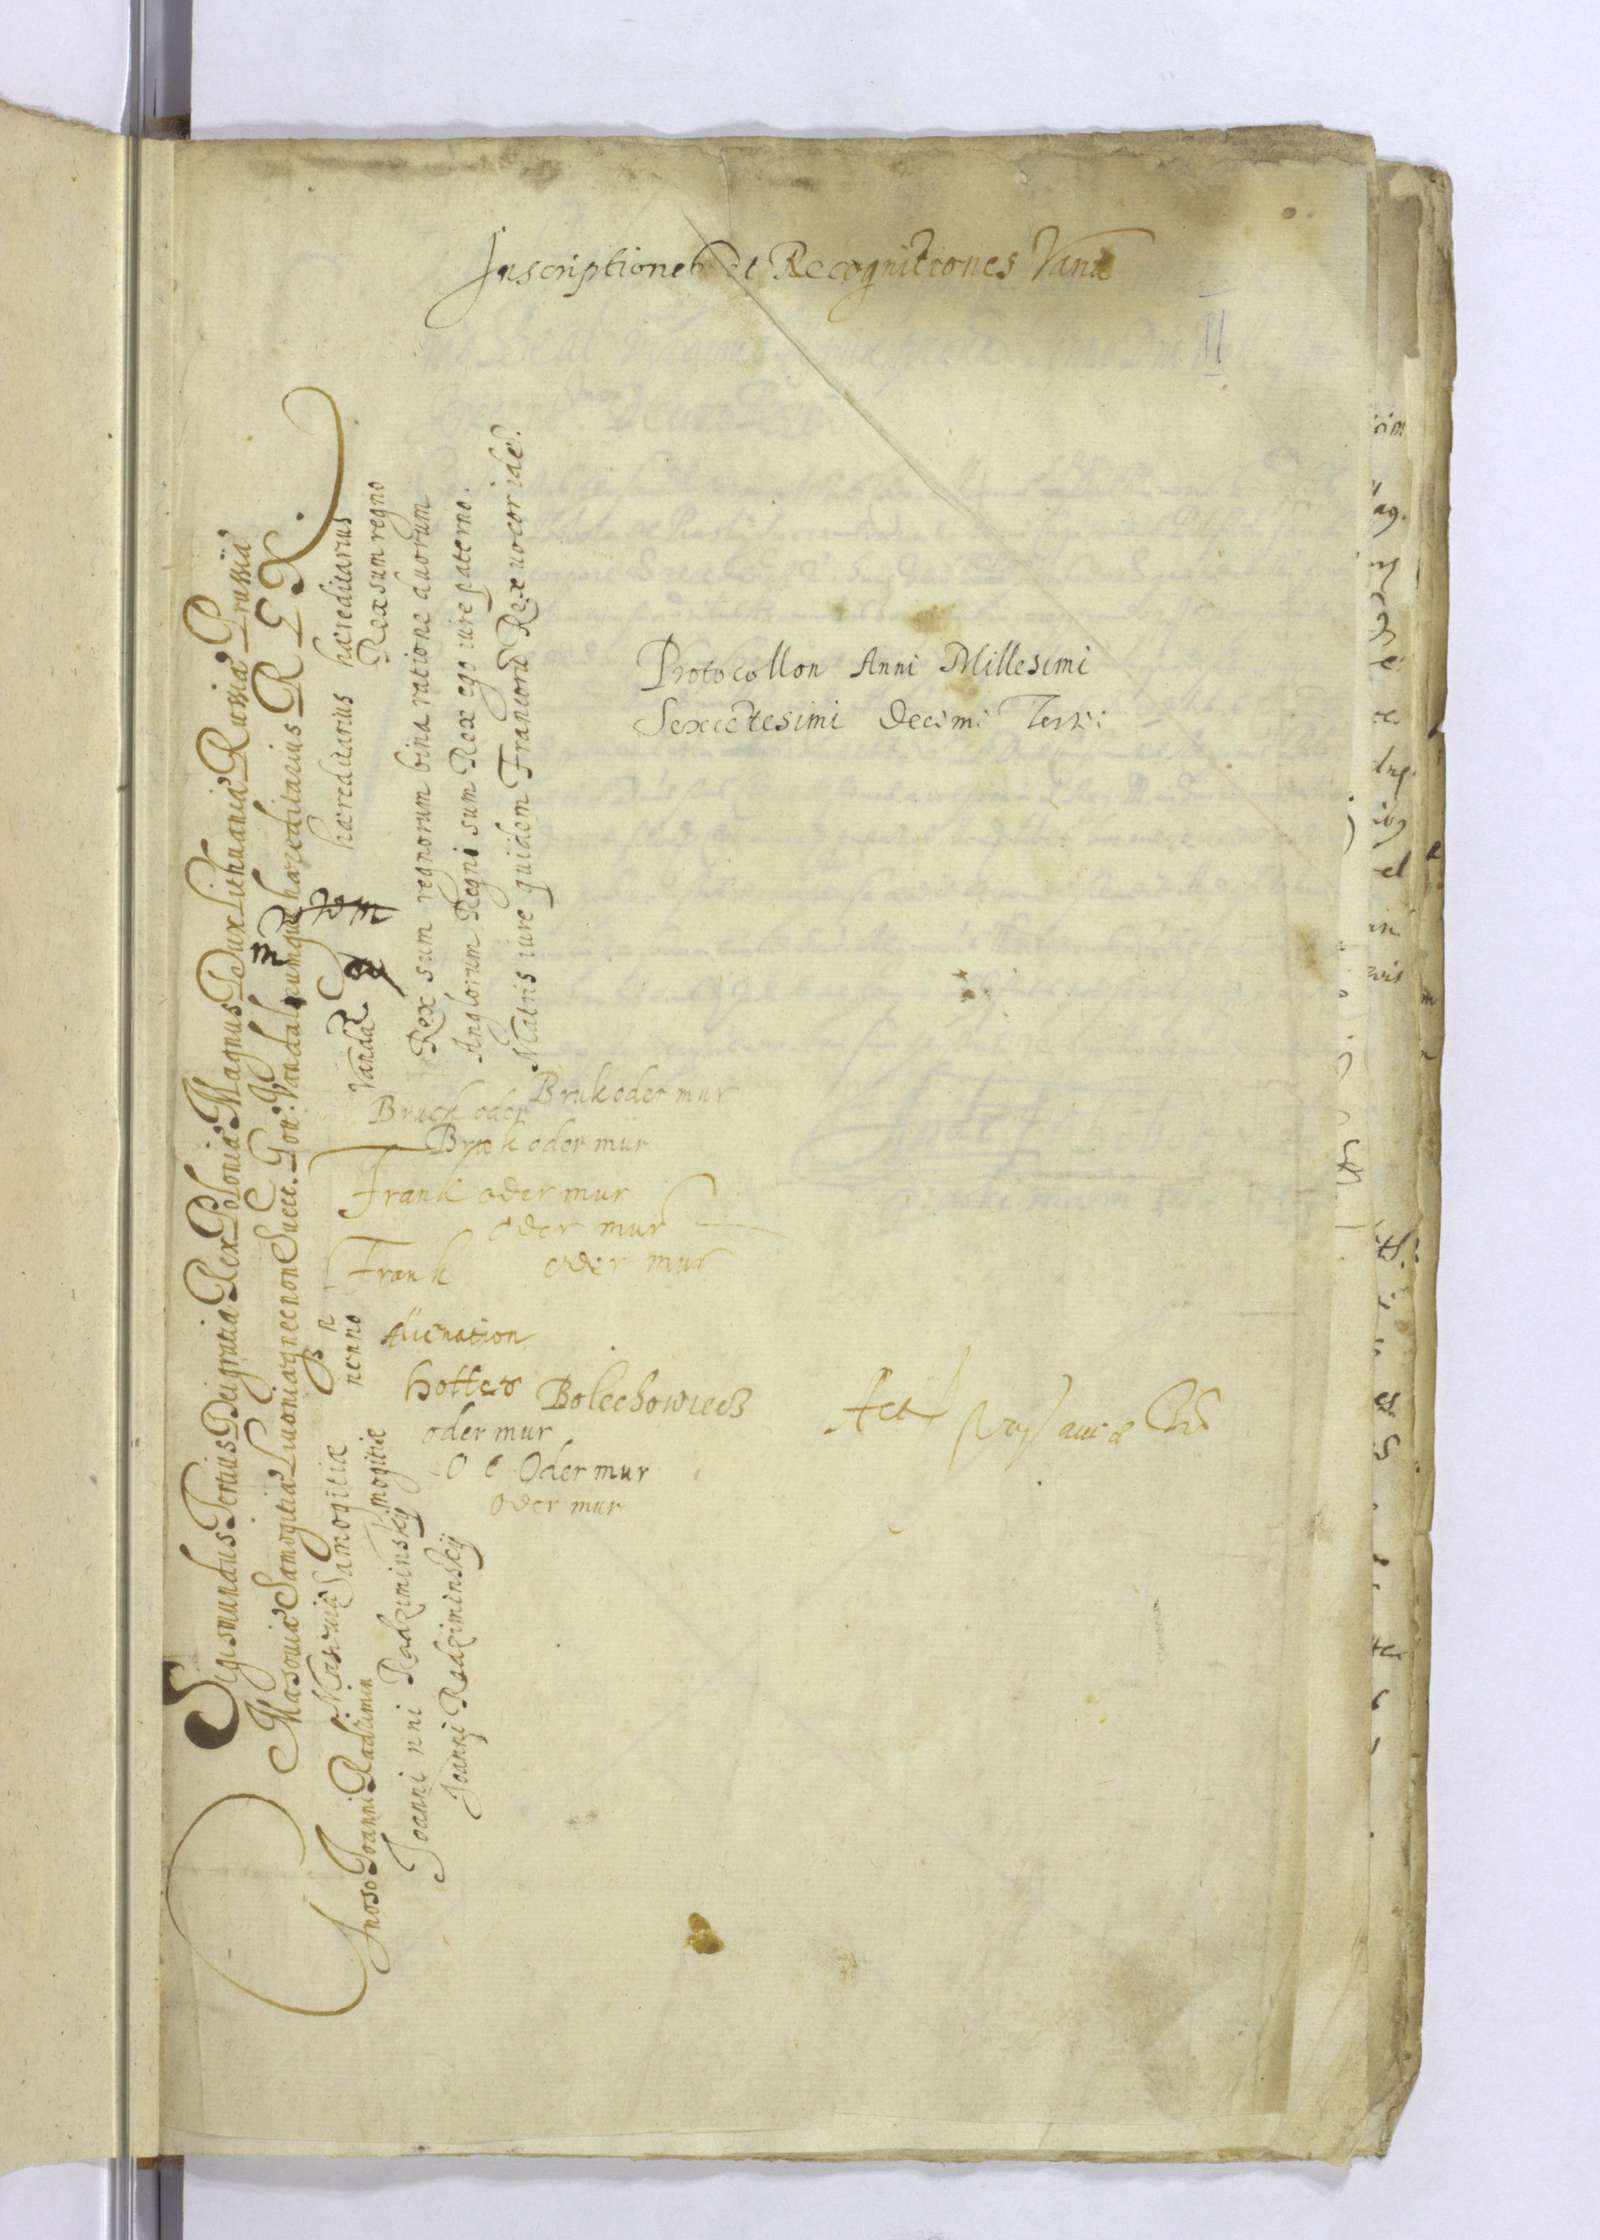 Inscriptiones et Recognitiones Variæ
II
Protocollon Anni Millesimi
Sexcētesimi Decimi Tertii
Sigismundus Tertius Dei gratia Rex Poloniæ Magnus Dux Lithuaniæ Russiæ Prussiæ
Masoviæ Samogitiæ Livoniæque necnon Suecc. Gott. Vandalorumque hæreditarius REX.
Samogitiæ hæreditarius hæreditarius
Joanni Radzimin mogitiæ nenno Vanda Rex sum regno
Joanni nni Radziminskij
Joanni Radziminskij
Rex sum regnorum bina ratione duorum
Anglorum Regni sum Rex ego iure paterno.
Matris iure quidem Francorū Rex vocor idē.
Bruck oder Bruk oder mur
Bruk oder mur
Frank oder mur
oder mur
Frank oder mur
Alienation
hotter Bolechowiecz
oder mur
O e Oder mur
oder mur
Act